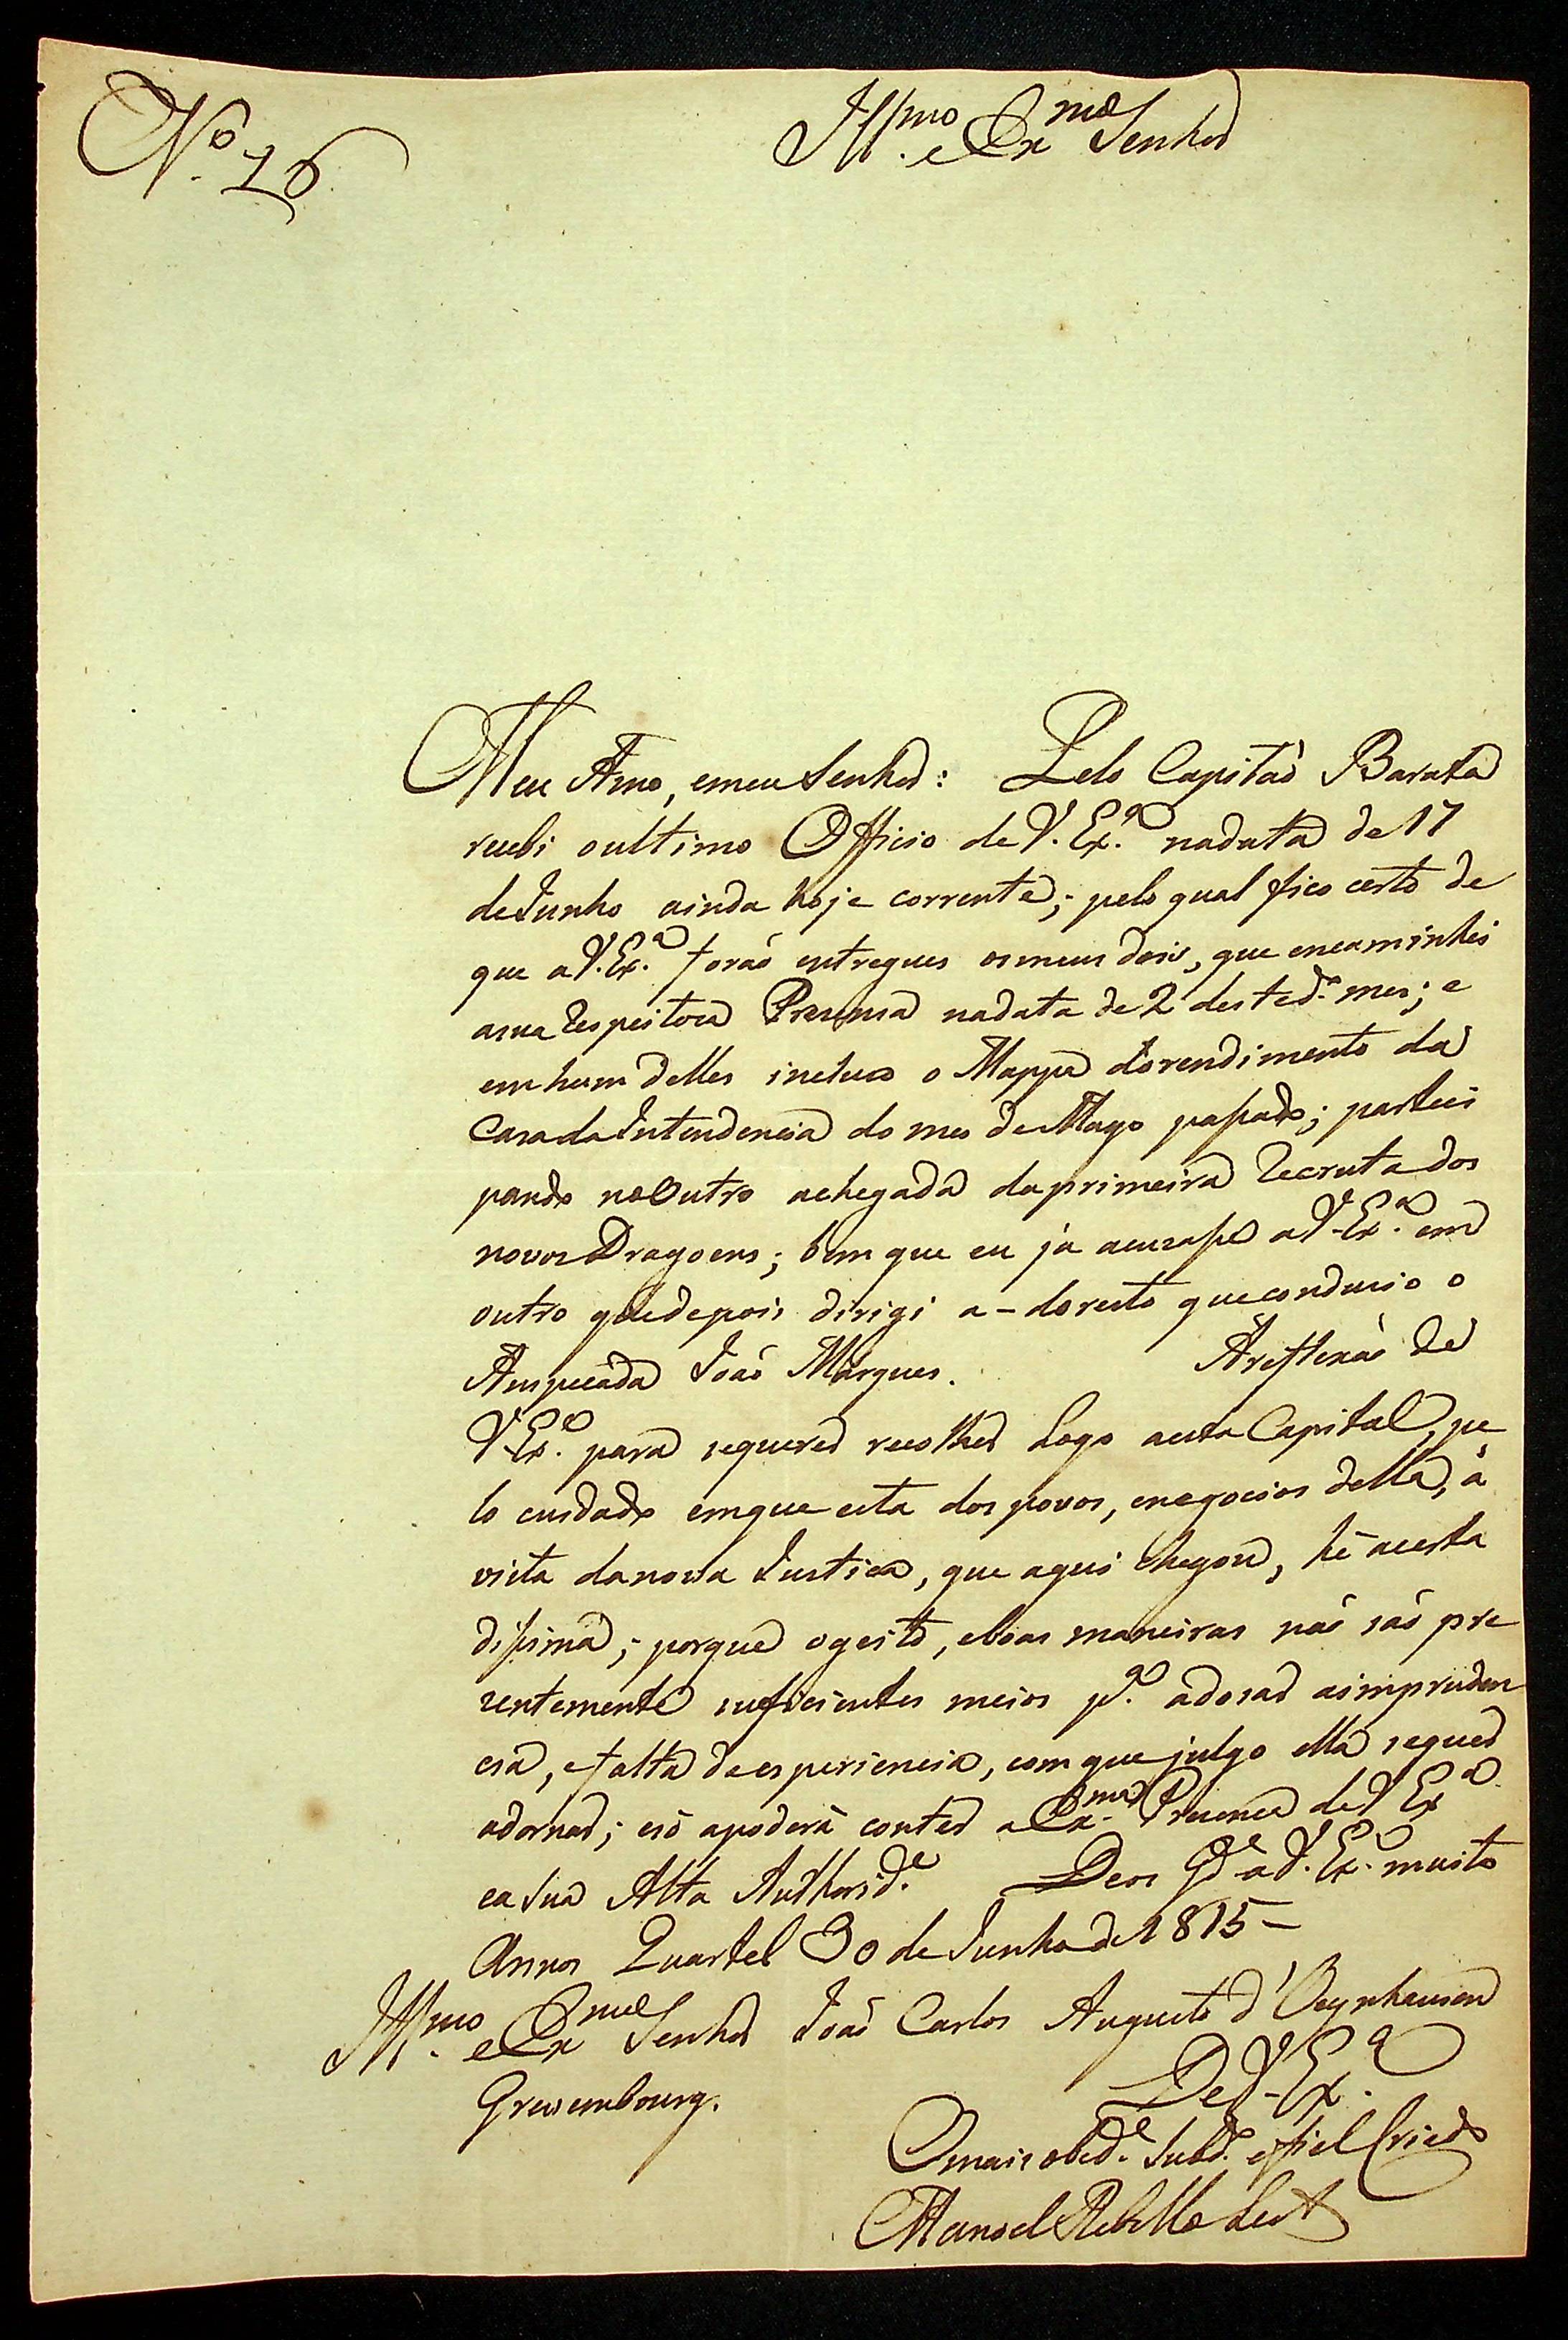 Nº. 16.
Illmo. e Exmo Senhor
Meu Amo, emeu Senhor: Pelo Capitaõ Barata
recebi oultimo Officio de V. Exª. nadata de 17
deJunho ainda hoje corrente; pelo qual fico certo de
que aV. Exª. foraõ entregues osmeus dois, que encaminhei
asua Respeitosa Presensa nadata de 2 dested.º mes; e
emhum delles incluso o Mappa dorendimento da
CasadaIntendencia do mes deMayo passado; partici
pando noOutro achegada daprimeira Recruta dos
novos Dragoens; bem que eu já acuzasse aV. Exª. em
outro quedepois dirigi a-doresto queconduzio o
Anspeçáda Joaõ Márques. Areflexaõ de
V. Exª. para sequerer recolher Logo aesta Capital, pe
lo cuidado emque esta dos povos, enegocios della, á
vista danova Justica, que aqui chegou, hé acerta
dissima; porque ogeito, eboas maneiras naõ saõ pre
zentemente suficientes meios pª. adosar aimpruden
cia, efalta deesperiencia, com que julgo ella sequer
adornar; esó apoderá conter a Exma. Presença de V. Exª
easua Alta Authorid.e Deos G.e aV. Exª. muitos
Annos Quartel 30 de Junho de 1815 –
Illmo. e Exmo Senhor Joaõ Carlos Augusto d'Oeynhausen
Grevembourg.
De V. Exª.
Omais obed.e Subd.º efiel Criado
Manoel Rebello Leite